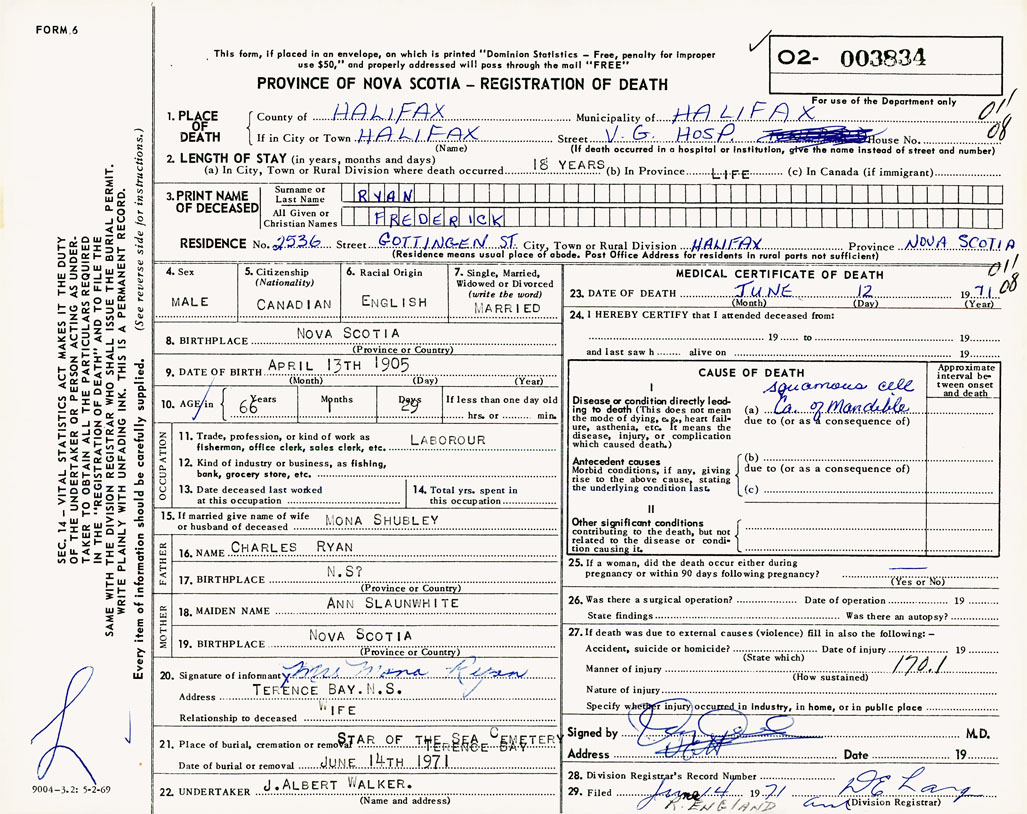 FORM.6
This form, if placed in an envelope, on which is printed "Dominion Statistics – Free, penalty for improper
use $50," and properly addressed will pass through the mail "FREE"
02- 003834
PROVINCE OF NOVA SCOTIA – REGISTRATION OF DEATH
For use of the Department only
011
08
1. PLACE OF DEATH
County of HALIFAX Municipality of HALIFAX
If in City or Town HALIFAX Street V. G. HOSP. House No.
(Name) (If death occurred in a hospital or institution, give the name instead of street and number)
2. LENGTH OF STAY (in years, months and days)
(a) In City, Town or Rural Division where death occurred 18 YEARS (b) In Province LIFE (c) In Canada (if immigrant)
3. PRINT NAME OF DECEASED
Surname or Last Name RYAN
All Given or Christian Names FREDERICK
RESIDENCE No. 2536 Street GOTTINGEN ST. City, Town or Rural Division HALIFAX Province NOVA SCOTIA
(Residence means usual place of abode. Post Office Address for residents in rural parts not sufficient)
011
08
4. Sex
MALE
5. Citizenship
(Nationality)
CANADIAN
6. Racial Origin
ENGLISH
7. Single, Married,
Widowed or Divorced
(write the word)
MARRIED
8. BIRTHPLACE NOVA SCOTIA
(Province or Country)
9. DATE OF BIRTH APRIL 13TH 1905
(Month) (Day) (Year)
10. AGE in 66 Years 1 Months 29 Days If less than one day old
hrs. or min.
OCCUPATION
11. Trade, profession, or kind of work as
fisherman, office clerk, sales clerk, etc. LABOROUR
12. Kind of industry or business, as fishing,
bank, grocery store, etc.
13. Date deceased last worked
at this occupation
14. Total yrs. spent in
this occupation
15. If married give name of wife
or husband of deceased MONA SHUBLEY
FATHER
16. NAME CHARLES RYAN
17. BIRTHPLACE N.S?
(Province or Country)
MOTHER
18. MAIDEN NAME ANN SLAUNWHITE
19. BIRTHPLACE NOVA SCOTIA
(Province or Country)
20. Signature of informant Mrs Mona Ryan
Address TERENCE BAY. N.S.
Relationship to deceased WIFE
21. Place of burial, cremation or removal STAR OF THE SEA CEMETERY
TERENCE BAY
Date of burial or removal JUNE 14TH 1971
22. UNDERTAKER J.ALBERT WALKER.
(Name and address)
MEDICAL CERTIFICATE OF DEATH
23. DATE OF DEATH JUNE 12 1971
(Month) (Day) (Year)
24. I HEREBY CERTIFY that I attended deceased from:
19 to 19
and last saw h alive on 19
CAUSE OF DEATH
Approximate
interval be-
tween onset
and death
I
Disease or condition directly lead-
ing to death (This does not mean
the mode of dying, e.g., heart fail-
ure, asthenia, etc. It means the
disease, injury, or complication
which caused death.)
squamous cell
(a) Ca. of Mandible
due to (or as a consequence of)
Antecedent causes
Morbid conditions, if any, giving
rise to the above cause, stating
the underlying condition last.
(b)
due to (or as a consequence of)
(c)
II
Other significant conditions
contributing to the death, but not
related to the disease or condi-
tion causing it.
25. If a woman, did the death occur either during
pregnancy or within 90 days following pregnancy?
(Yes or No)
26. Was there a surgical operation? Date of operation 19
State findings Was there an autopsy?
27. If death was due to external causes (violence) fill in also the following:–
Accident, suicide or homicide? Date of injury 19
(State which)
Manner of injury 170.1
(How sustained)
Nature of injury
Specify whether injury occurred in industry, in home, or in public place
Signed by M.D.
Address Date 19
28. Division Registrar's Record Number
29. Filed June 14 1971 D E Lang
R. ENGLAND (Division Registrar)
SEC. 14 – VITAL STATISTICS ACT MAKES IT THE DUTY
OF THE UNDERTAKER OR PERSON ACTING AS UNDER-
TAKER TO OBTAIN ALL THE PARTICULARS REQUIRED
IN THE "REGISTRATION OF DEATH" AND TO FILE THE
SAME WITH THE DIVISION REGISTRAR WHO SHALL ISSUE THE BURIAL PERMIT.
WRITE PLAINLY WITH UNFADING INK. THIS IS A PERMANENT RECORD.
Every item of information should be carefully supplied. (See reverse side for instructions.)
9004-3.2: 5-2-69